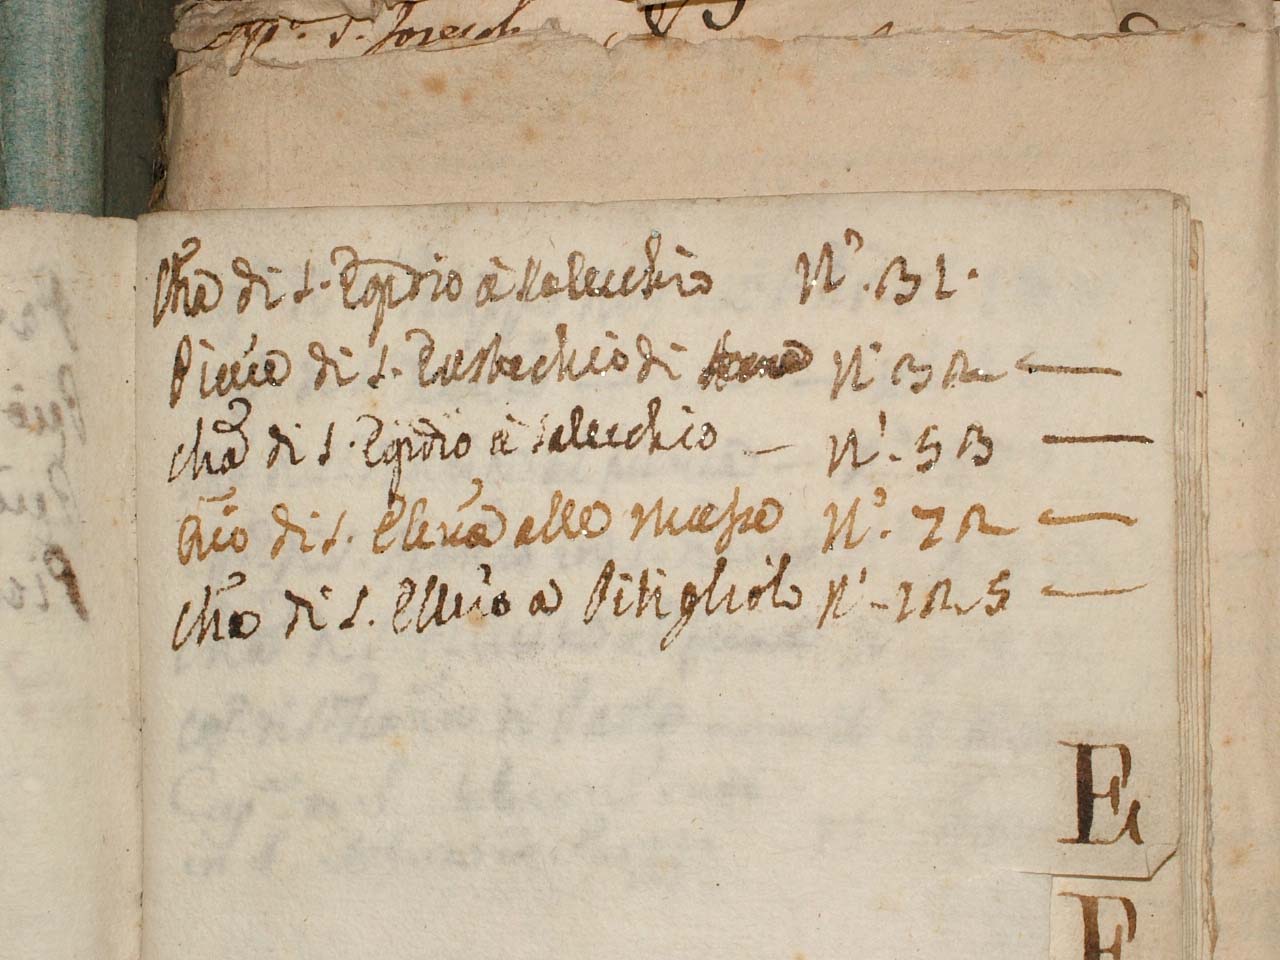 S. Joseph
Cha di S. Egidio à Salecchio N.° 31.
Pieve di S. Eustachio di N.° 32
Cha di S. Egidio à Salecchio N.° 53
di S. Elena alle N.° 72
Cha di S. Ellero a Pitigliolo N.° 125
E
F